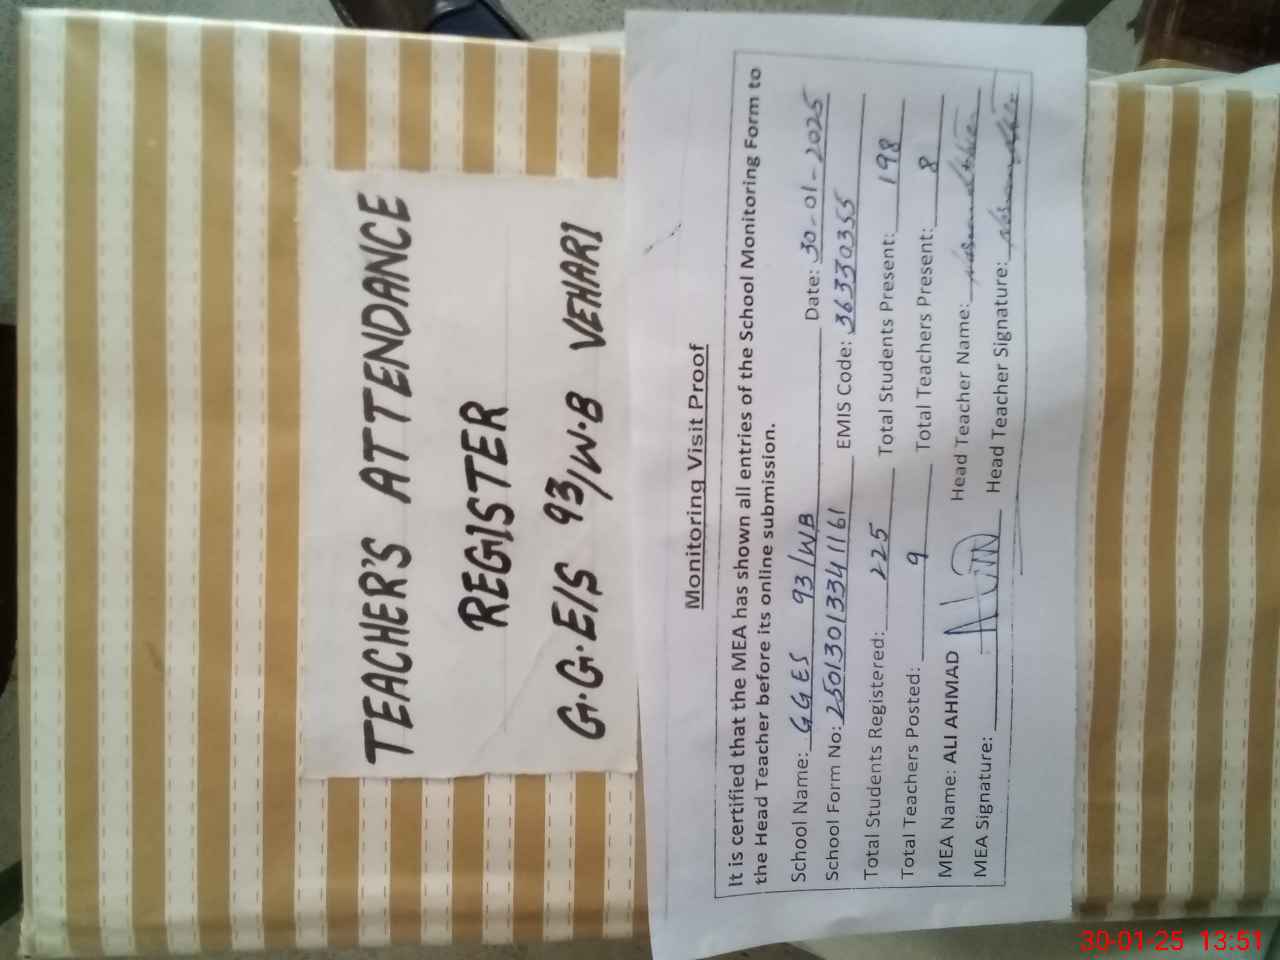 TEACHER'S ATTENDANCE
REGISTER
G.G.E/S 93/W.B VEHARI
Monitoring Visit Proof
It is certified that the MEA has shown all entries of the School Monitoring Form to
the Head Teacher before its online submission.
School Name: GGES 93/WB Date: 30-01-2025
School Form No: 2501301334 1161 EMIS Code: 36330355
Total Students Registered: 225 Total Students Present: 198
Total Teachers Posted: 9 Total Teachers Present: 8
MEA Name: ALI AHMAD Head Teacher Name:
MEA Signature: Head Teacher Signature:
30-01-25 13:51